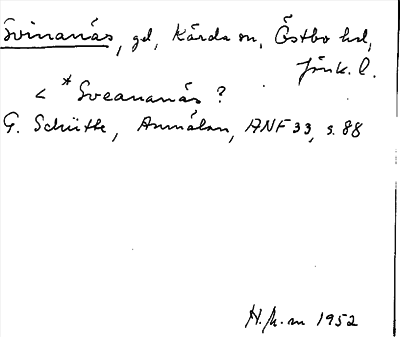 Svinanäs, gd, Kärda sn, Östbo hd,
Jönk. l.
< *Sveananäs ?
G. Schütte, Anmälan, ANF 33, s. 88
H. 1952